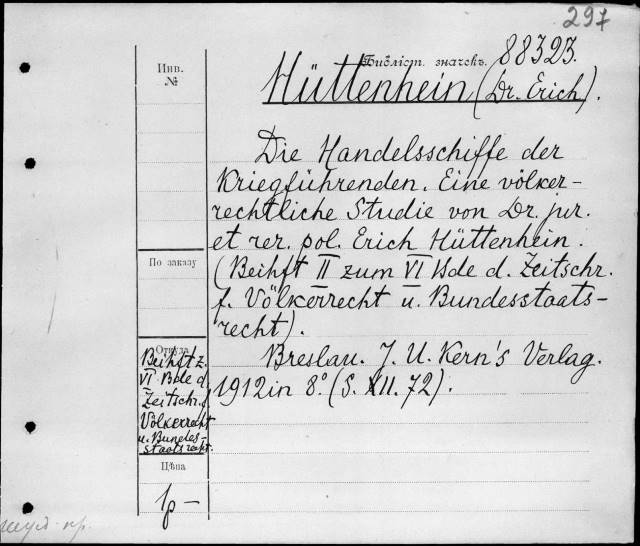 297
Инв. №
Библіот. значекъ. 88323.
Hüttenhein (Dr. Erich).
Die Handelsschiffe der
Kriegführenden. Eine völker-
rechtliche Studie von Dr. jur.
et rer. pol. Erich Hüttenhein.
(Beihft II zum VI Bde d. Zeitschr.
f. Völkerrecht u. Bundesstaats-
recht).
Breslau. J. U. Kern's Verlag.
1912 in 8° (S. XII. 72).
По заказу
Откуда
Beihft z.
VI Bde d.
Zeitschr. f.
Völkerrecht
u. Bundes-
staatsrecht.
Цѣна
1р —